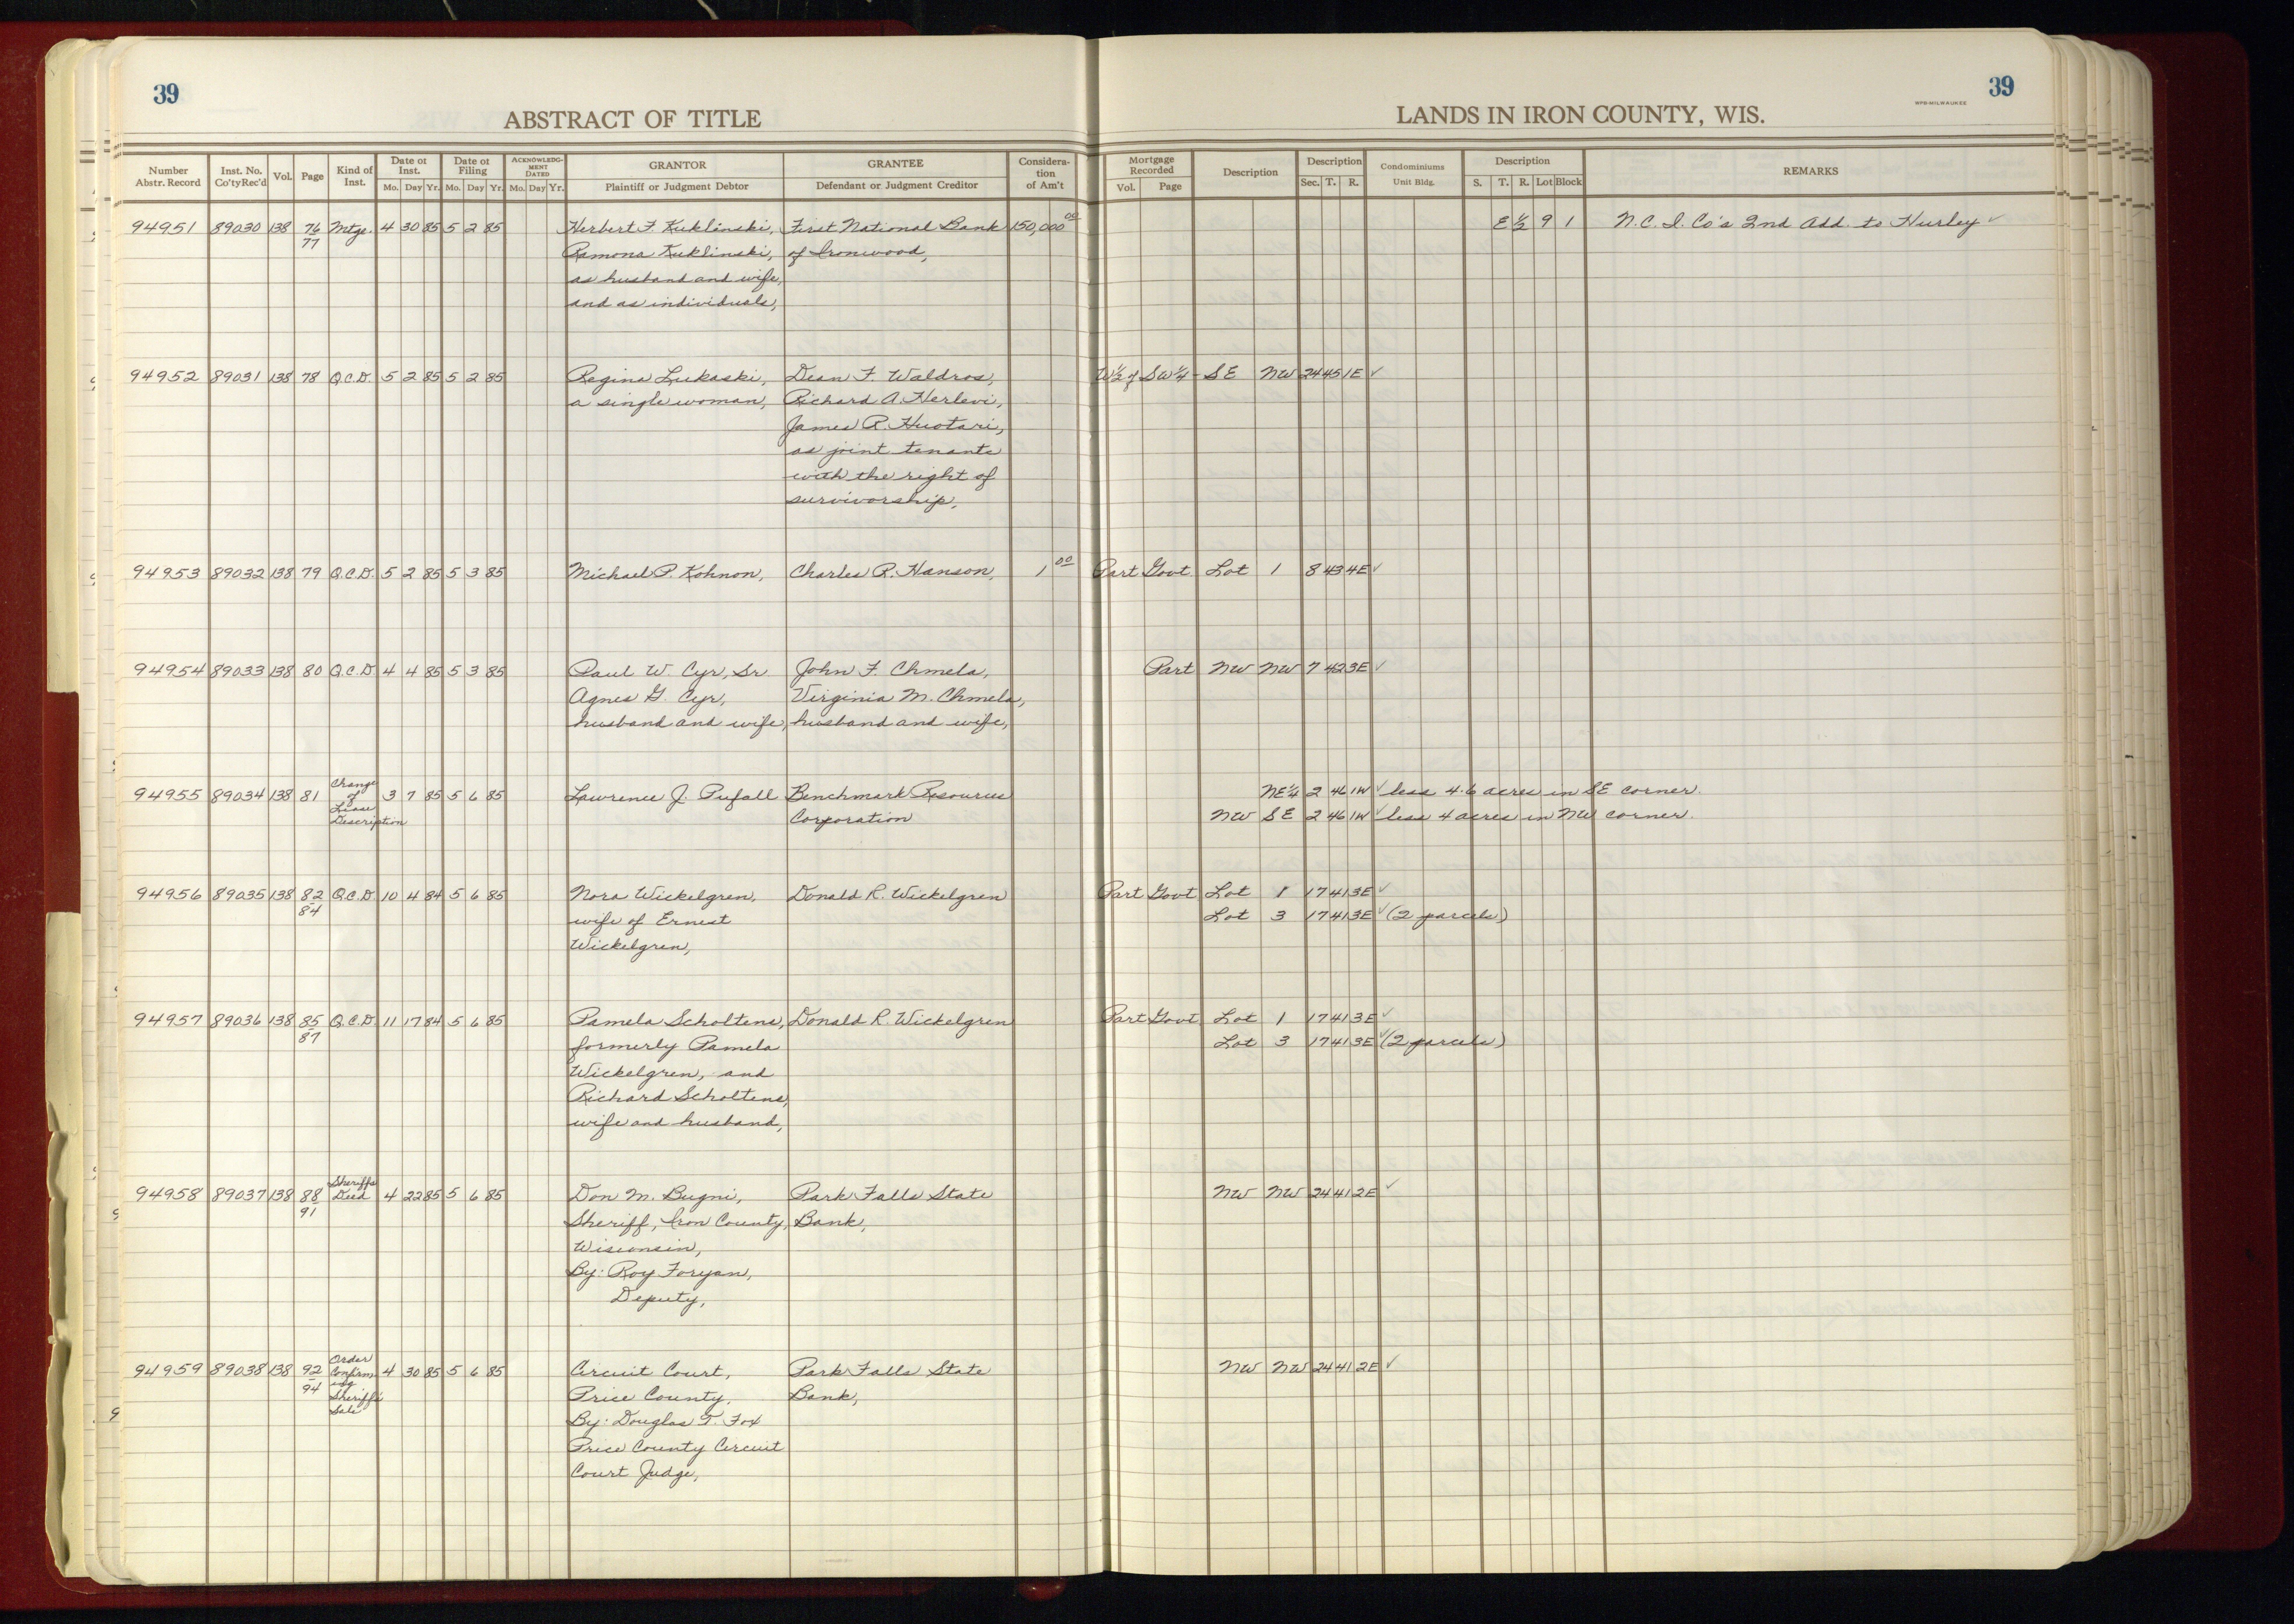 39
39
ABSTRACT OF TITLE
LANDS IN IRON COUNTY, WIS.
WPB-MILWAUKEE
Number Abstr. Record Inst. No. Co'ty Rec'd Vol. Page Kind of Inst. Date of Inst. Mo. Day Yr. Date of Filing Mo. Day Yr. ACKNOWLEDGMENT DATED Mo. Day Yr. GRANTOR Plaintiff or Judgment Debtor GRANTEE Defendant or Judgment Creditor Consideration of Am't Mortgage Recorded Vol. Page Description Description Sec. T. R. Condominiums Unit Bldg. Description S. T. R. Lot Block REMARKS
94951 89030 138 76 Mtge. 4 30 85 5 2 85 Herbert F. Kuklinski, First National Bank 150,000 00 E 1/2 9 1 N.C.I. Co's 2nd Add. to Hurley ✓
77 Ramona Kuklinski, of Ironwood,
as husband and wife,
and as individuals,
94952 89031 138 78 Q.C.D. 5 2 85 5 2 85 Regina Lukaski, Dean F. Waldros, W 1/2 of SW 1/4 - SE NW 24 45 1E ✓
a single woman, Richard A. Herlevi,
James R. Huotari,
as joint tenants
with the right of
survivorship,
94953 89032 138 79 Q.C.D. 5 2 85 5 3 85 Michael P. Kohnon, Charles R. Hanson, 1 00 Part Govt. Lot 1 8 43 4E ✓
94954 89033 138 80 Q.C.D. 4 4 85 5 3 85 Paul W. Cyr, Sr John F. Chmela, Part NW NW 7 42 3E ✓
Agnes G. Cyr, Virginia M. Chmela,
husband and wife, husband and wife,
94955 89034 138 81 Change of Lease Description 3 7 85 5 6 85 Lawrence J. Pufall Benchmark Resources NE 1/4 2 46 1W ✓ less 4.6 acres in SE corner.
Corporation NW SE 2 46 1W ✓ less 4 acres in NW corner.
94956 89035 138 82 Q.C.D. 10 4 84 5 6 85 Nora Wickelgren, Donald R. Wickelgren Part Govt Lot 1 17 41 3E ✓
84 wife of Ernest Lot 3 17 41 3E ✓ (2 parcels)
Wickelgren,
94957 89036 138 85 Q.C.D. 11 17 84 5 6 85 Pamela Scholtens, Donald R. Wickelgren Part Govt Lot 1 17 41 3E ✓
87 formerly Pamela Lot 3 17 41 3E ✓ (2 parcels)
Wickelgren, and
Richard Scholtens,
wife and husband,
94958 89037 138 88 Sheriffs Deed 4 22 85 5 6 85 Don M. Bugni, Park Falls State NW NW 24 41 2E ✓
91 Sheriff, Iron County, Bank,
Wisconsin,
By: Roy Foryan,
Deputy,
94959 89038 138 92 Order Confirming Sheriff's Sale 4 30 85 5 6 85 Circuit Court, Park Falls State NW NW 24 41 2E ✓
94 Price County, Bank,
By: Douglas T. Fox
Price County Circuit
Court Judge,